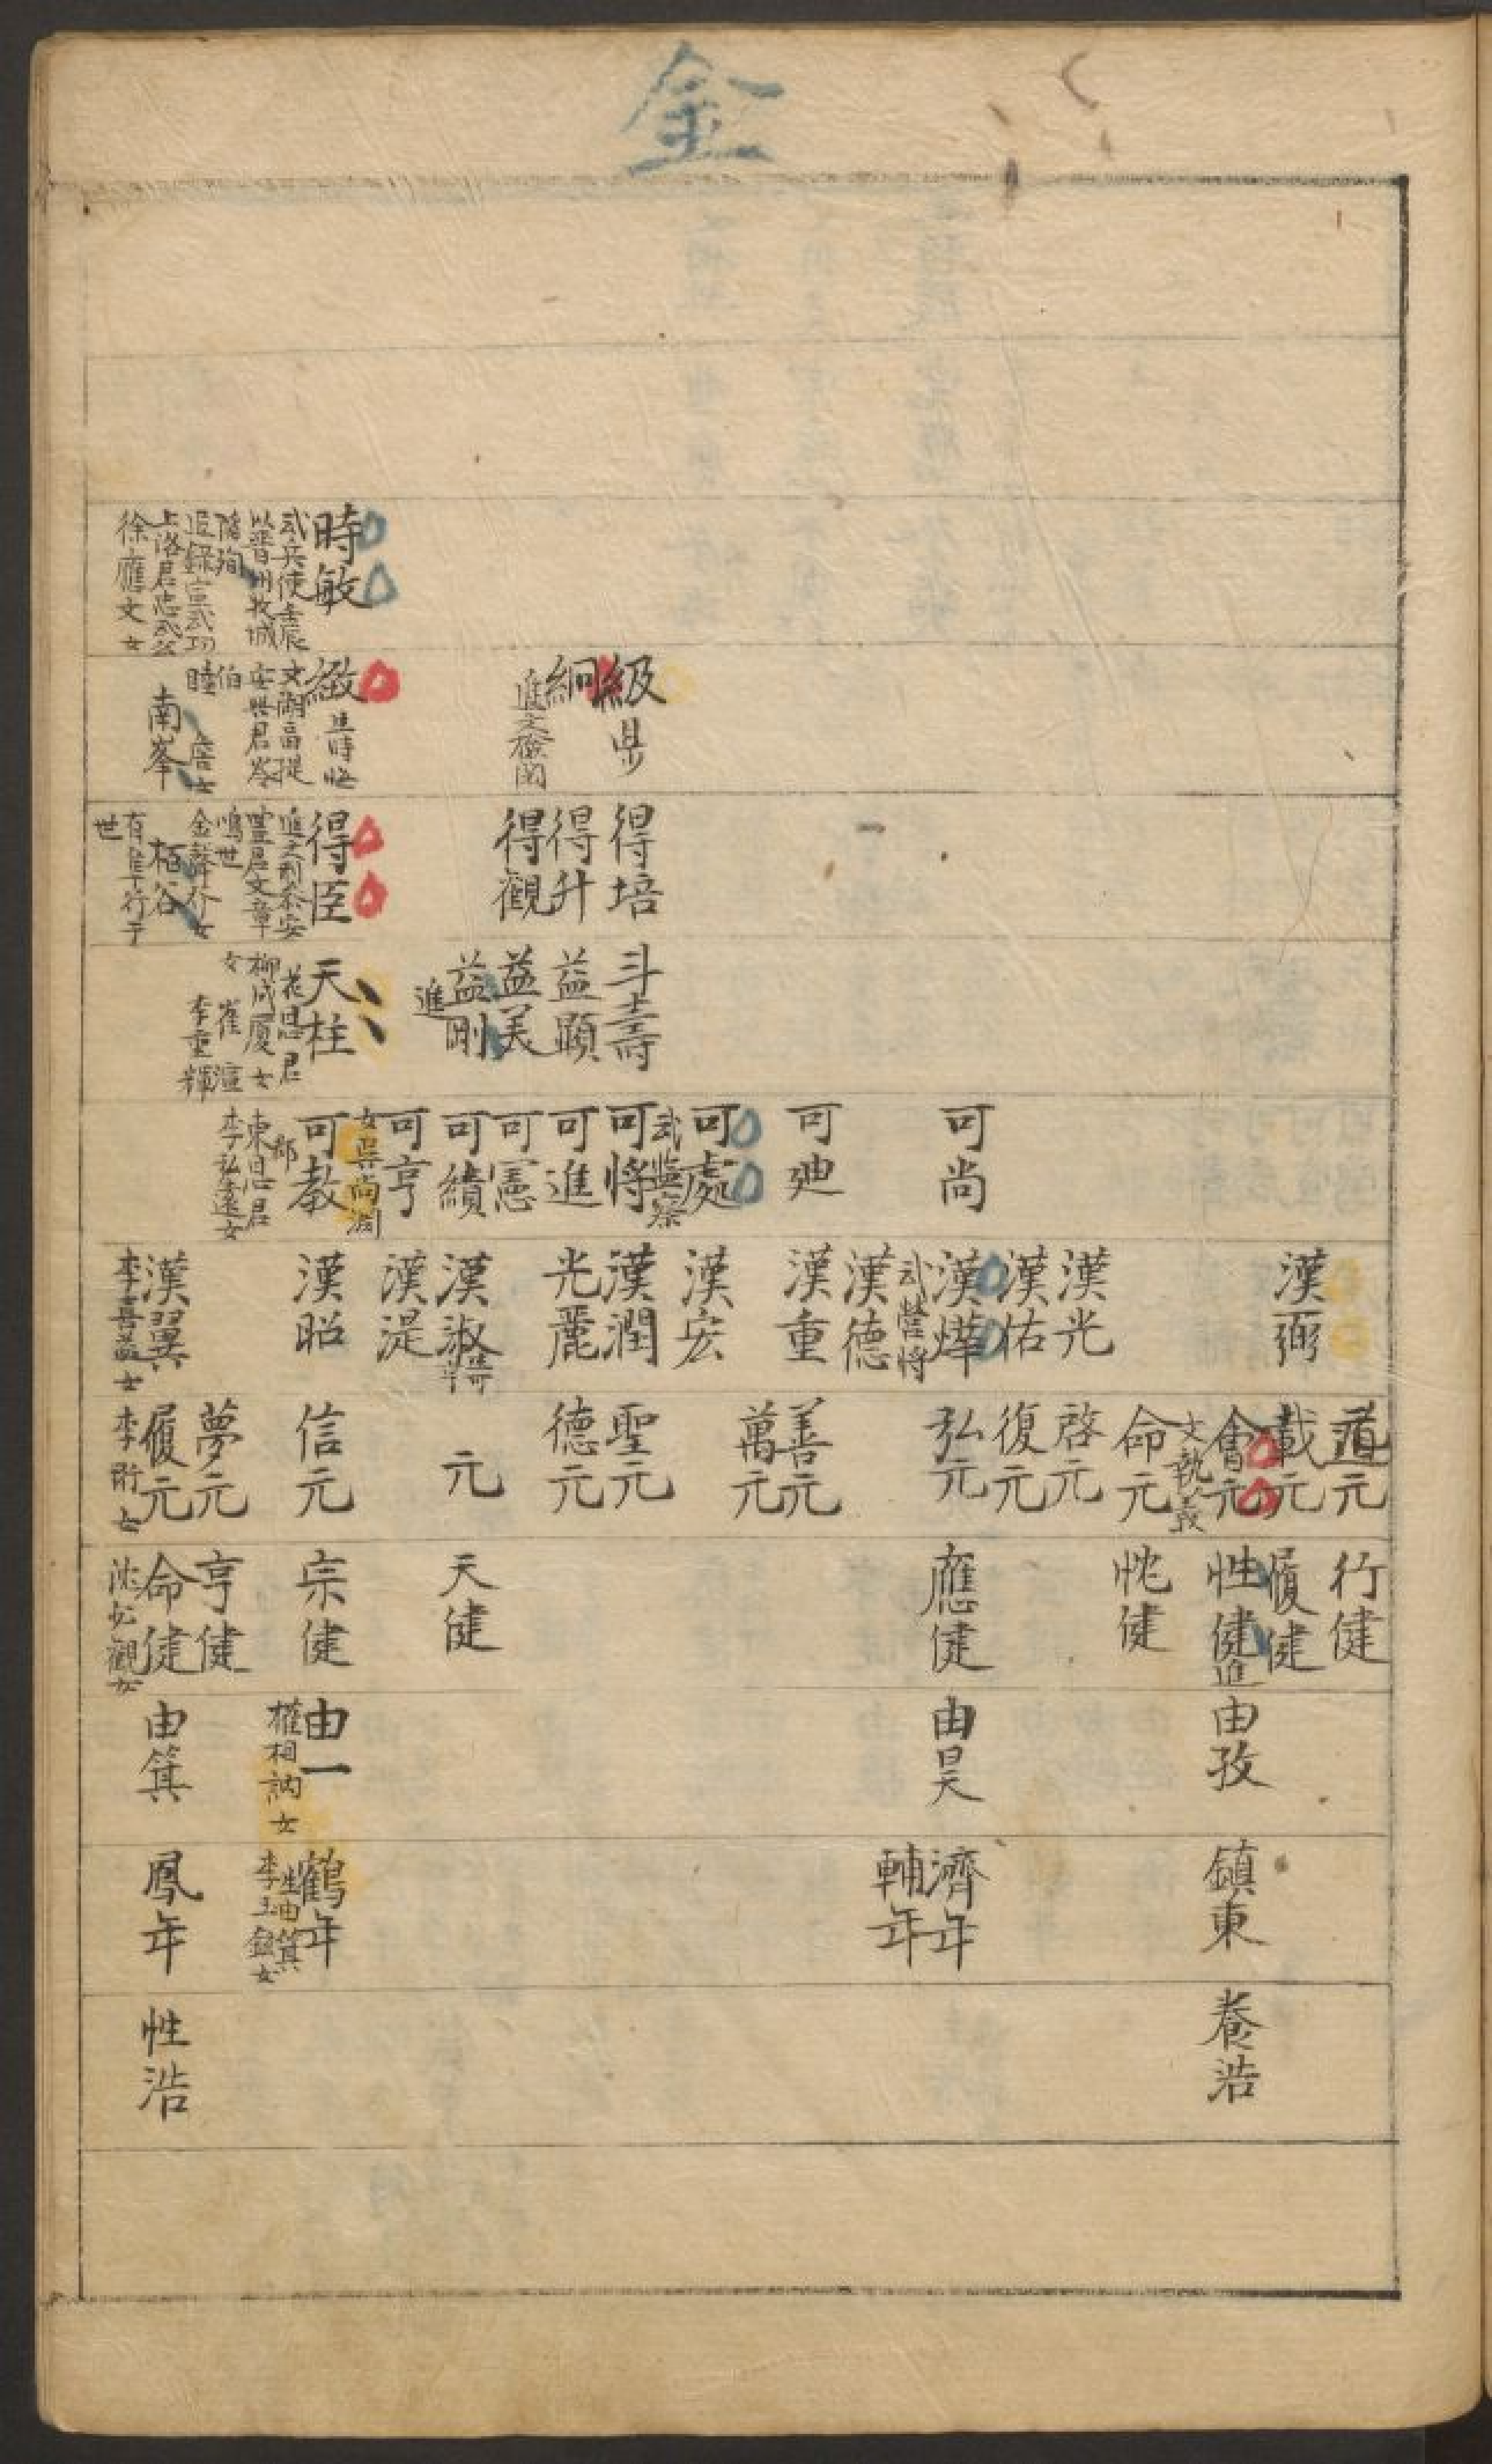 金
時敏
武兵使壬辰
以晋州牧城
陷殉
追錄宣武功
上洛君忠武公
徐應文 女
級
縣
絅
進文檢閱
緻
生時怡
文湖南提
安興君
伯
南峯
得培
得升
得觀
得臣
進文刑參安
豐君文章
鳴世
金聲介女
栢谷
有集行于
世
斗壽
益顯
益美
益剛
進
天柱
花恩君
柳成厦女
女 崔
李重輝
可尚
可廸
可處
武監察
可將
可進
可憲
可績
可亨
女吳尚
可教
都
東恩君
李弘遠女
漢弼
漢光
漢佑
漢燁
武營將
漢德
漢重
漢宏
漢潤
光麗
漢淑
漢湜
漢昭
漢翼
李喜益女
道元
載元
會元
文執義
命元
啓元
復元
弘元
善元
萬元
聖元
德元
元
信元
夢元
履元
李 女
行健
履健
性健
進
忱健
應健
天健
宗健
亨健
命健
沈 觀女
由孜
由昊
由一
權相訥女
由箕
鎮東
濟年
輔年
鶴年
生由箕
李 女
鳳年
養浩
性浩